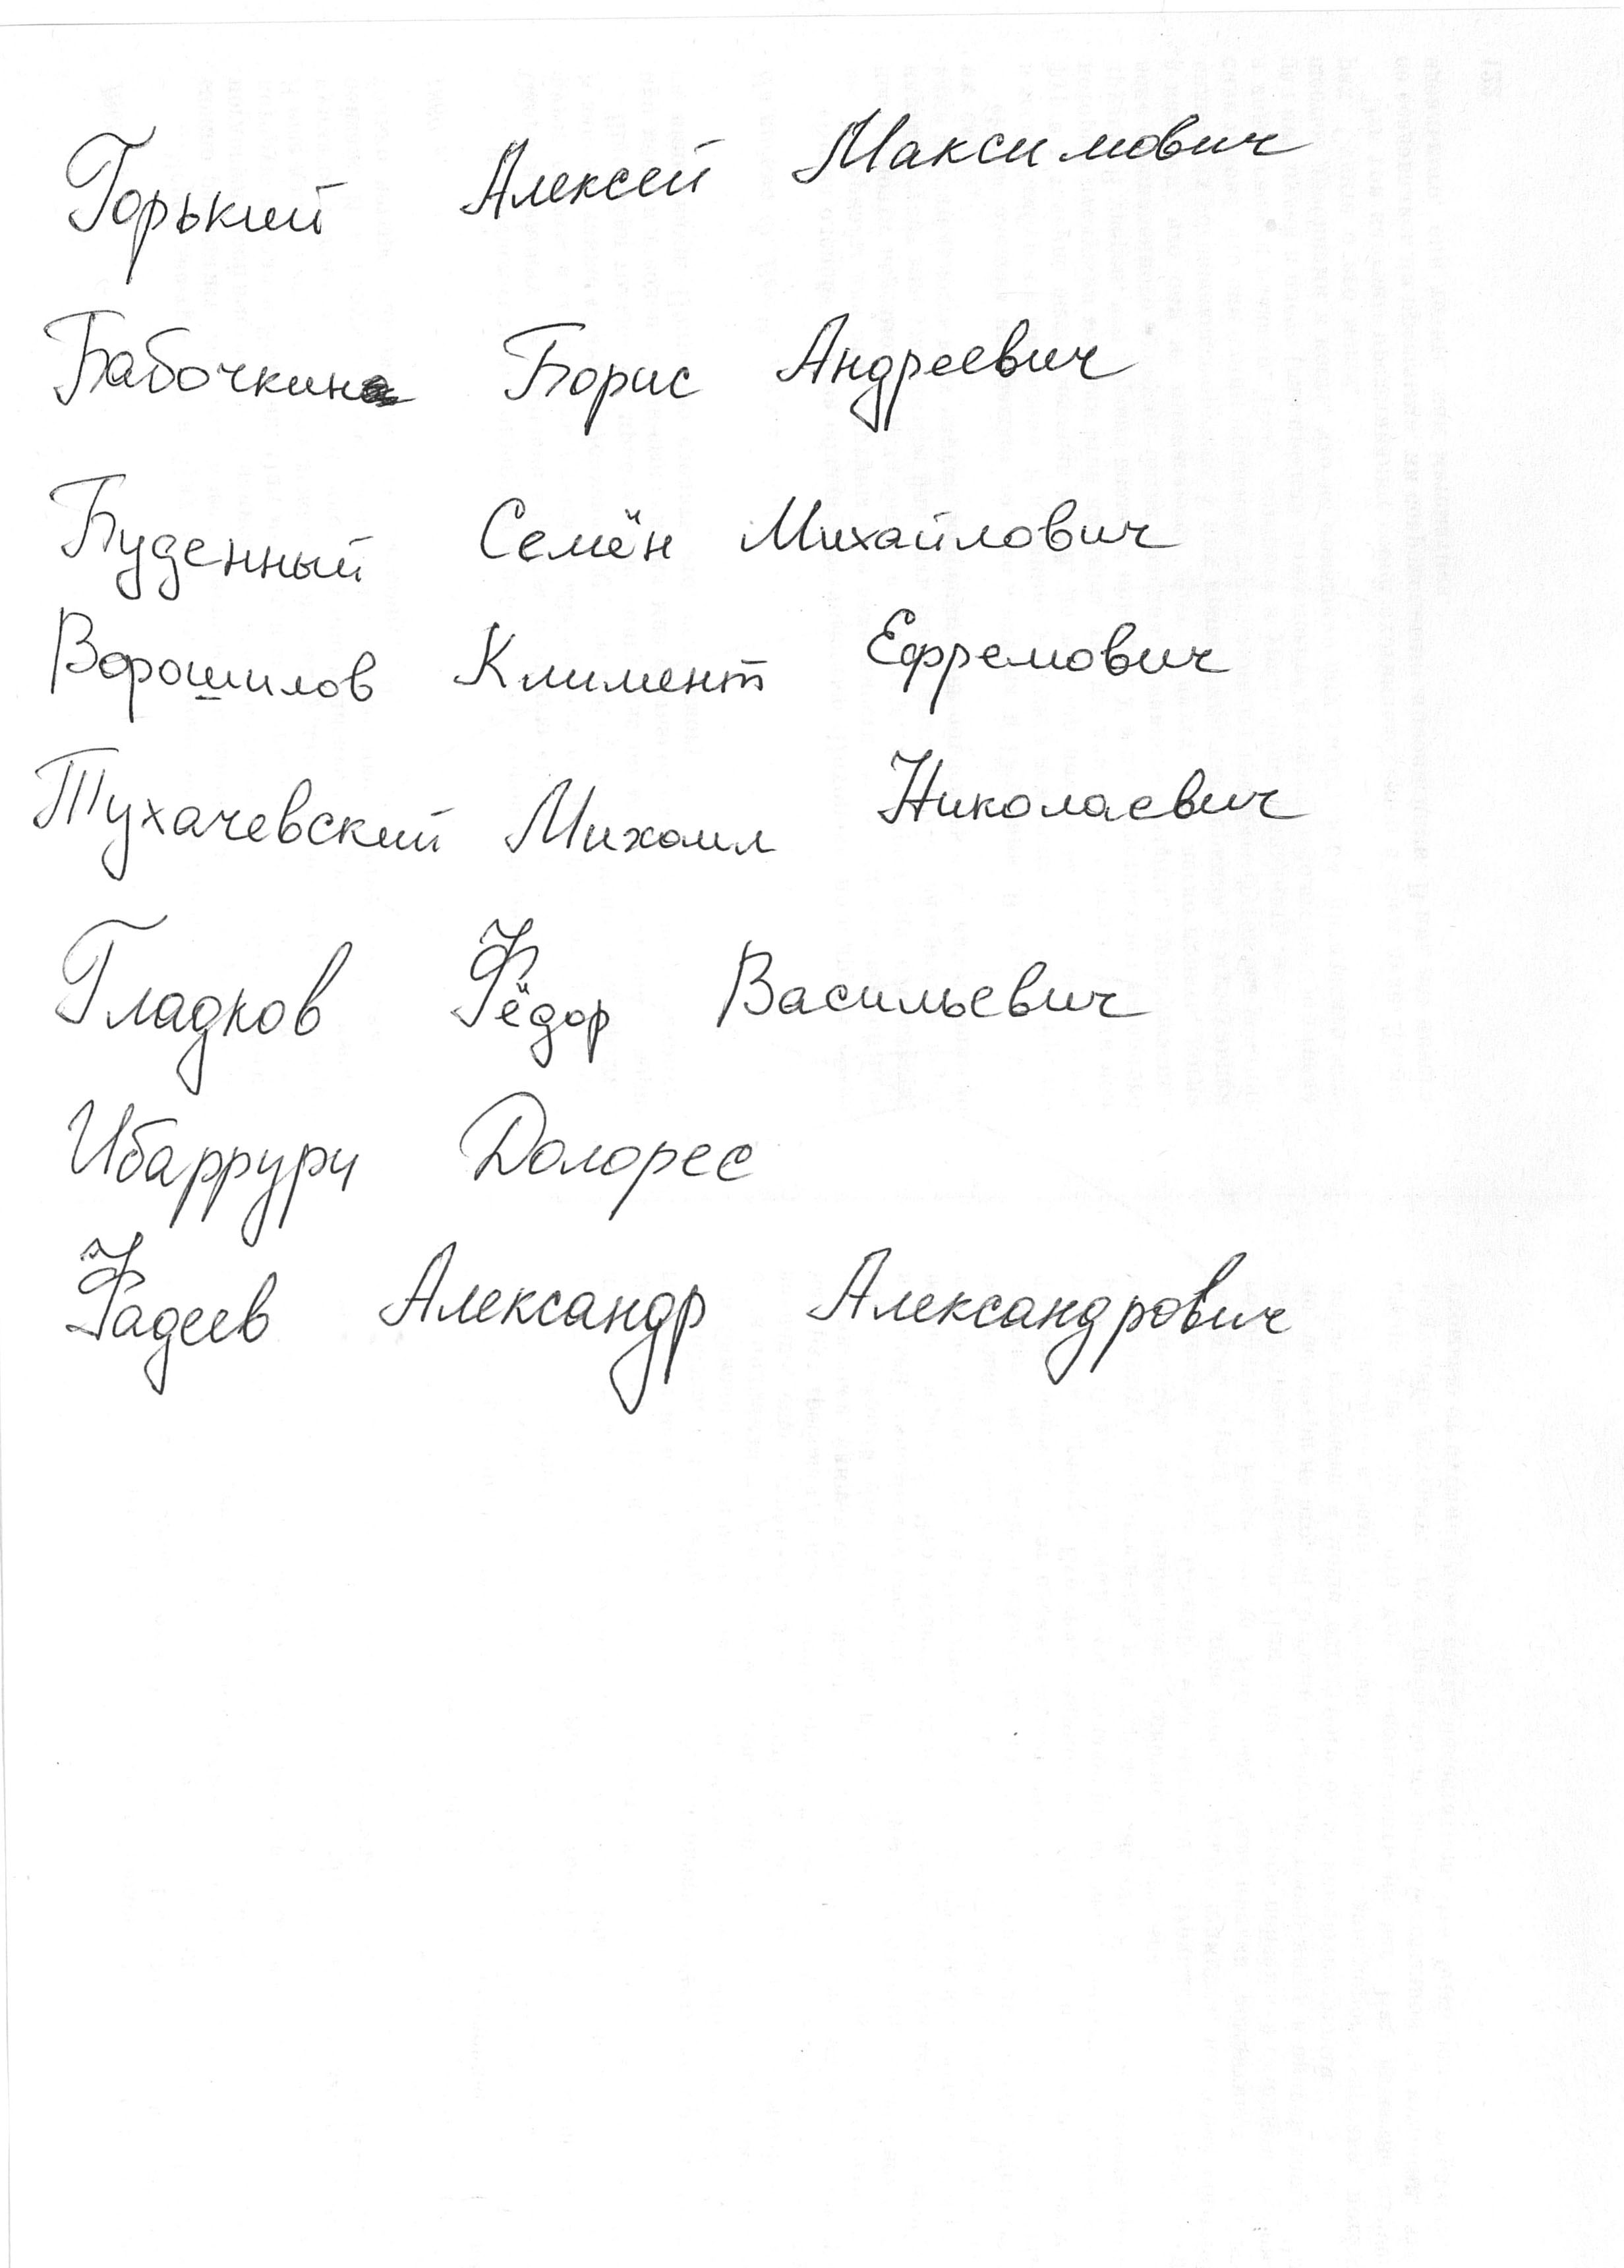 Горький Алексей Максимович
Бабочкин Борис Андреевич
Буденный Семён Михайлович
Ворошилов Климент Ефремович
Тухачевский Михаил Николаевич
Гладков Фёдор Васильевич
Ибаррури Долорес
Фадеев Александр Александрович